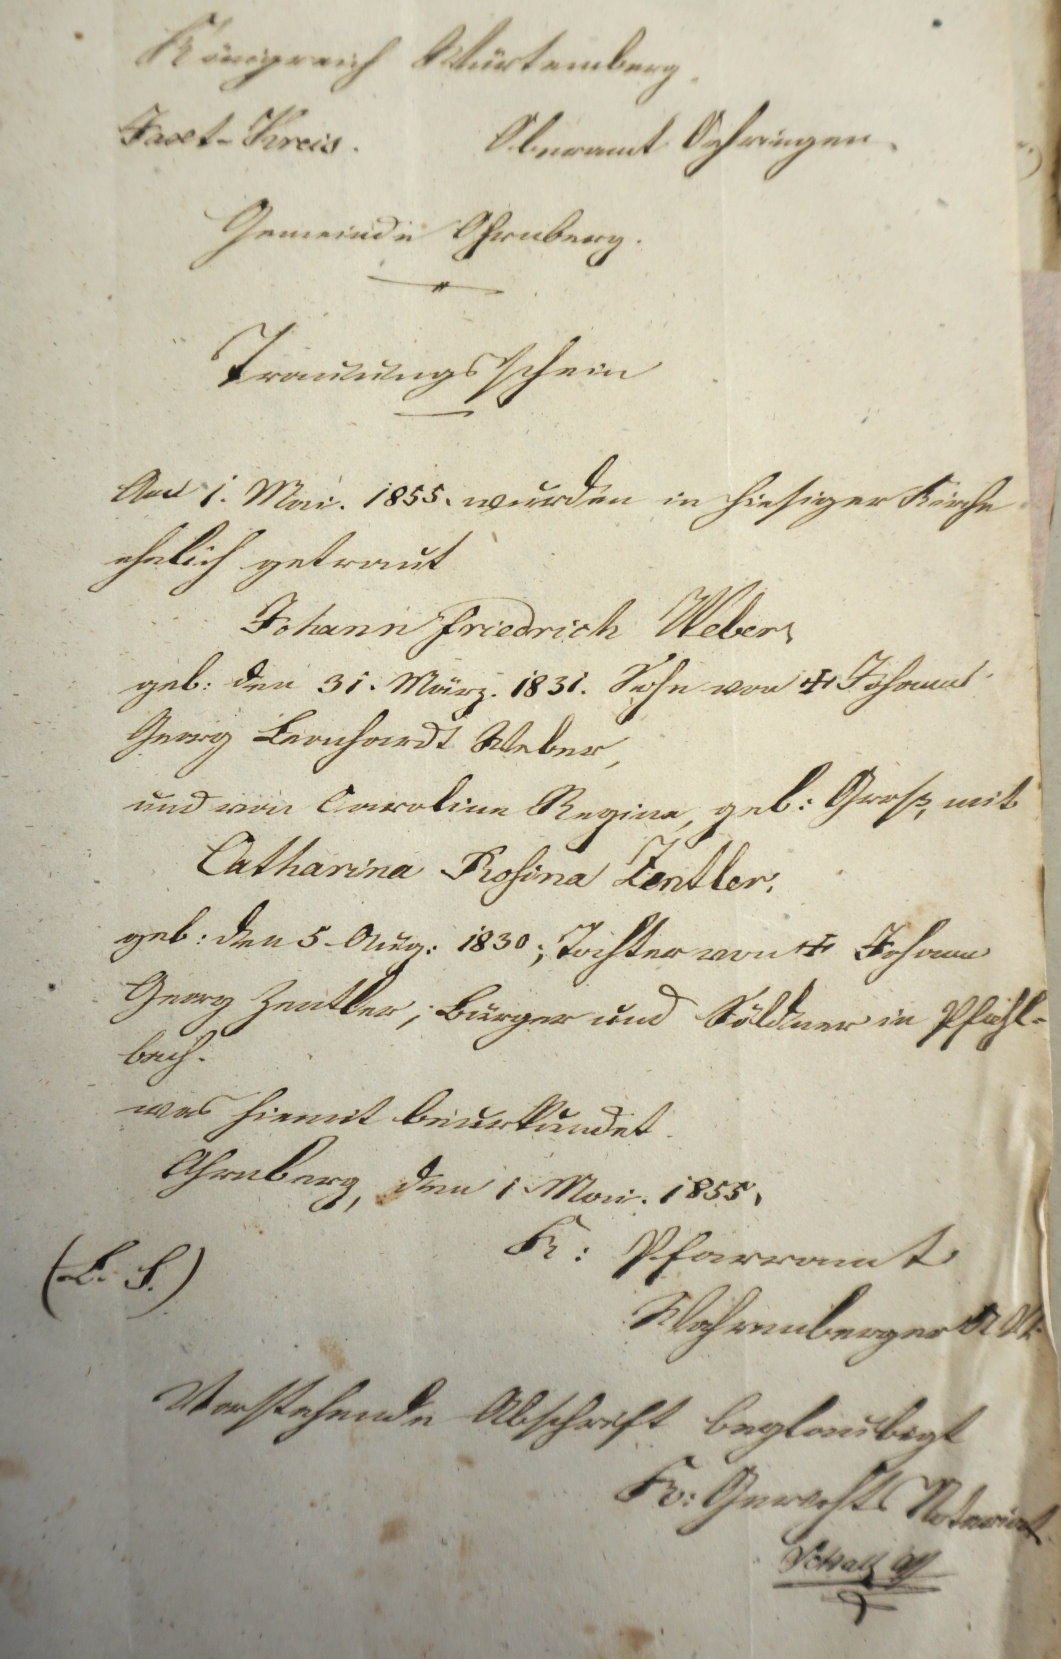 Königreich Würtemberg.
Jaxt-Kreis. Oberamt Oehringen.
Gemeinde Ohrnberg.
Trauungsschein
Am 1. Mai. 1855. wurden in hiesiger Kirche
ehelich getraut
Johann Friedrich Weber,
geb: den 31. März. 1831. Sohn von ✝ Johann
Georg Leonhardt Weber,
und von Caroline Regine, geb: Groß, mit
Catharina Rosina Zentler,
geb: den 5. Aug: 1830; Tochter von ✝ Johann
Georg Zentler, Bürger und Söldner in Pfahl-
bach.
was hiemit beurkundet.
Ohrnberg, den 1. Mai. 1855.
K: Pfarramt
(L. S.)
Wahrenberger
Vorstehende Abschrift beglaubigt
K: Gerichts Notariat